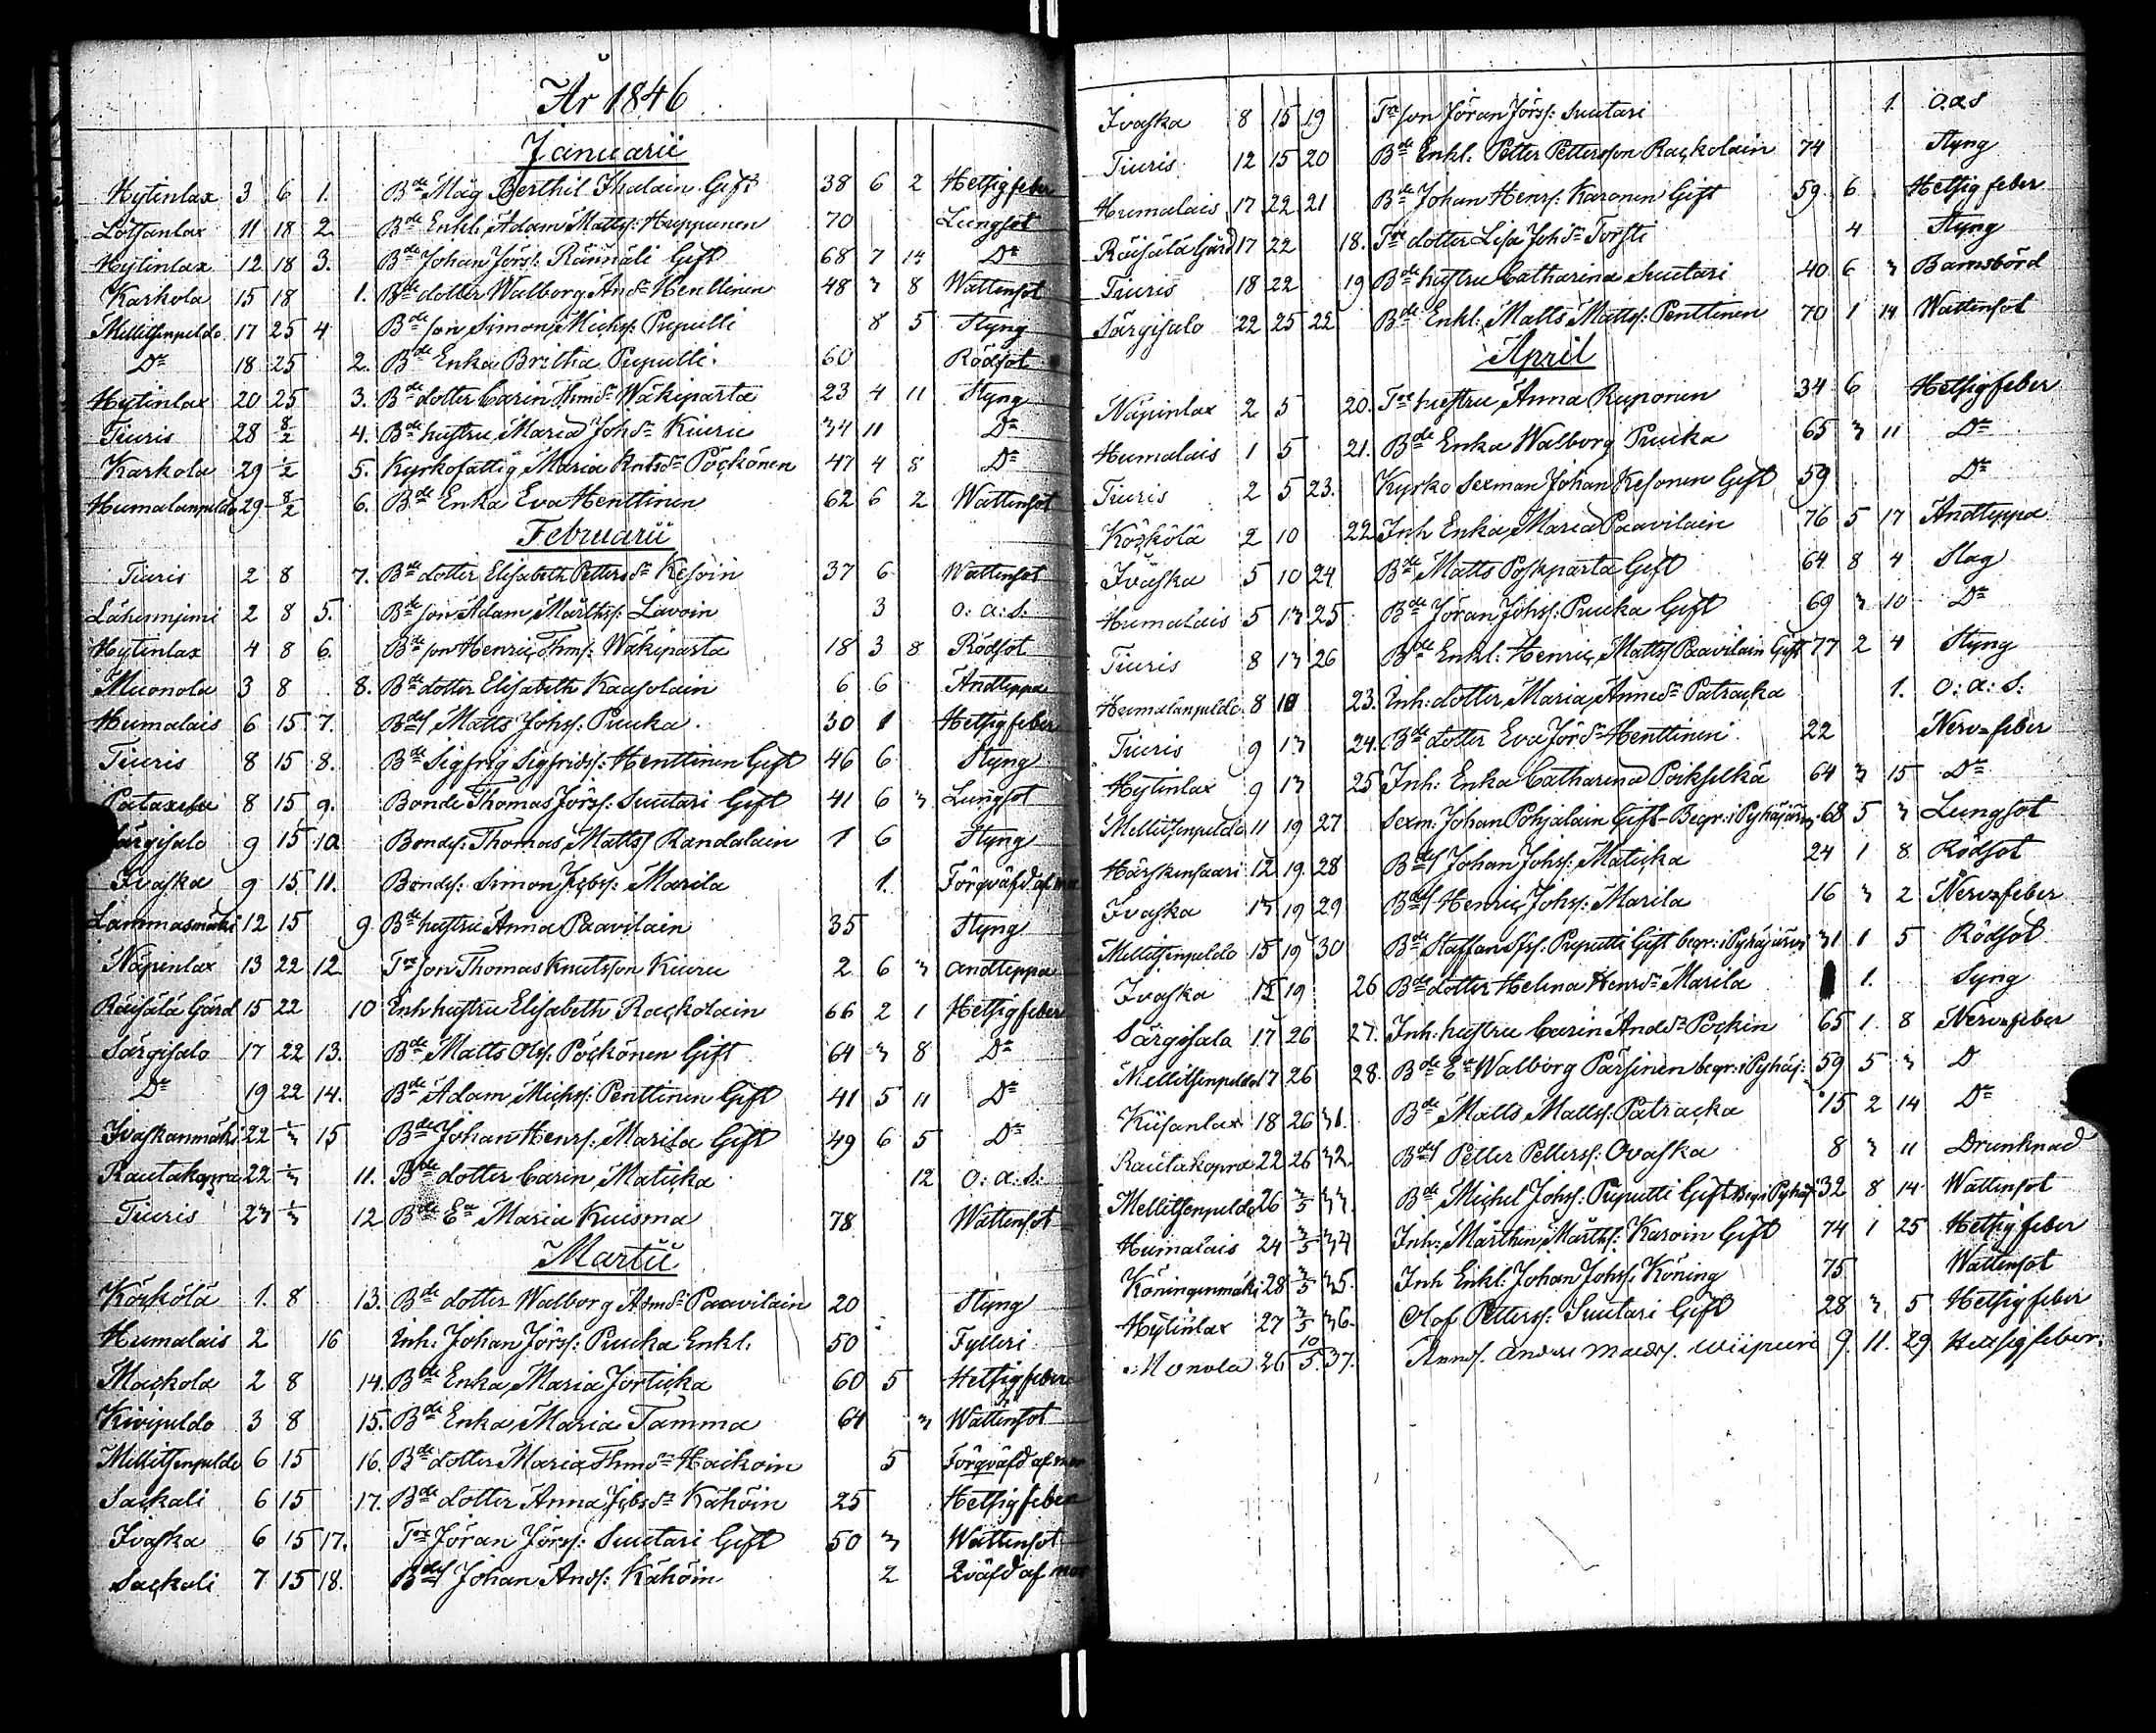 År 1846
Januarii
Hytinlax 3 6 1. Bde Måg Berthil Ihalain Gift 38 6 2 Hetsigfeber
Lötjanlax 11 18 2. Bde Enkl. Adam Matts: Huppunen 70 Lungsot
Hytinlax 12 18 3. Bde Johan Jörs: Rännäli Gift 68 7 14 Do
Karkola 15 18 1. Bde dotter Walborg Andsdr Henttinen 48 3 8 Wattensot
Mellitsenpeldo 17 25 4 Bde son Simon Michs: Puputti 8 5 Styng
Do 18 25 2. Bde Enka Britha Puputti. 60 Rödsot
Hytinlax 20 25 3. Bde dotter Carin Thmsdr Wäkiparta 23 4 11 Styng
Tiuris 28 8/2 4. Bde hustru Maria Johsdr Kiuru 34 11 Do
Karkola 29 1/2 5. Kyrkofattig Maria Kntsdr Pöckönen 47 4 8 Do
Humalanpeldo 29 8/2 6. Bde Enka Eva Henttinen 62 6 2 Wattensot
Februarii
Tiuris 2 8 7. Bde dotter Elisabeth Pettersdr Kesoin 37 6 Wattensot
Lähenniemi 2 8 5. Bde son Adam Mårthss: Lavoin 3 o: a: s.
Hytinlax 4 8 6. Bde son Henric Thms: Wäkiparta 18 3 8 Rödsot
Muonola 3 8 8. Bde dotter Elisabeth Kaasolain 6 6 Andteppa
Humalais 6 15 7. Bdes Matts Johs: Puuka 30 1 Hetsigfeber
Tiuris 8 15 8. Bde Sigfrig Sigfrids: Henttinen Gift 46 6 Styng
8 15 9. Bonde Thomas Jörss: Suutari Gift 41 6 3 Lungsot
Särgisalo 9 15 10 Bondes: Thomas Matts Randalain 1 6 Styng
Ivaska 9 15 11. Bondes: Simon Jcbs: Marila 1. Förqväfd af
Lammasmäki 12 15 9 Bde hustru Anna Paavilain 35 Styng
Näpinlax 13 22 12 Tre son Thomas Knutsson Kiuru 2 6 3 andteppa
Räisälä Gård 15 22 10 Inh hustru Elisabeth Rackolain 66 2 1 Hetsigfeber
Särgisalo 17 22 13. Bde Matts Ols: Pöckönen Gift 64 3 8 Do
Do 19 22 14. Bde Adam Michs: Penttinen Gift 41 5 11 Do
Ivaskanmäki 22 1/3 15 Bde Johan Henrs: Marila Gift 49 6 5 Do
Rautakopra 22 1/3 11. Bde dotter Carin Maticka 12 o: a: s:
Tiuris 23 1/3 12 Bde Ea Maria Kuisma 78 Wattensot
Martii
Köskölä 1. 8 13. Bde dotter Walborg Admsdr Paavilain 20 Styng
Humalais 2 16 Inh: Johan Jörss: Puuka Enkl. 50 Fylleri
Mackola 2 8 14. Bde Enka Maria Jorticka 60 5 Hetsigfeber
Kivipeldo 3 8 15. Bde Enka Maria Tamma 64 3 Wattensot
Mellitsenpeldo 6 15 16. Bde dotter Maria Thmsdr Haikoin 5 Förqväfd af
Sackali 6 15 17. Bde dotter Anna Jcbsdr Kähöin 25 Hetsigfeber
Ivaska 6 15 17. Tre Jöran Jörss: Suutari Gift 50 3 Wattensot
Sackali 7 15 18. Bdes Johan Ands: Kähöin 2 Qväfd af
Ivaska 8 15 19 Tre son Jöran Jörss: Suutari 1. o.a.s
Tiuris 12 15 20 Bde Enkl. Petter Pettersson Rackolain 74 Styng
Humalais 17 22 21 Bde Johan Henrs: Karonen Gift 59 6 Hetsig feber
Räisälä Gård 17 22 18. Tre dotter Lisa Johsdr Torsti 4 Styng
Tiuris 18 22 19 Bde hustru Catharina Suutari 40 6 3 Barnsbörd
Särgisalo 22 25 22 Bde Enkl: Matts Matts: Penttinen 70 1 14 Wattensot
April
Näpinlax 2 5 20. Tre hustru Anna Ruponen 34 6 Hetsigfeber
Humalais 1 5 21. Bde Enka Walborg Puuka 65 3 11 Do
Tiuris 2 5 23. Kyrko Sexman Johan Kesonen Gift 59 Do
Köskölä 2 10 22 Inh Enka Maria Paavilain 76 5 17 Andteppa
Ivaska 5 10 24 Bde Matts Poskparta Gift 64 8 4 Slag
Humalais 5 13 25 Bde Jöran Johs: Puuka Gift 69 3 10 Do
Tiuris 8 13 26 Bde Enkl: Henric Matts Paavilain Gift 77 2 4 Styng
Humalanpeldo 8 10 23. Inh: dotter Maria Annesdr Patracka 1. o: a: s:
Tiuris 9 13 24. Bde dotter Eva Jörsdr Henttinen 22 Nerv=feber
Hytinlax 9 13 25 Inh: Enka Catharina Poikselkä 64 3 15 Do
Mellitsenpeldo 11 19 27 Sexm: Johan Pohjalain Gift - Begr: i Pyhäjärvi 68 5 3 Lungsot
Härskensaari 12 19 28 Bdes Johan Johs: Maticka 24 1 8 Rödsot
Ivaska 13 19 29 Bdes Henric Johss: Marila 16 3 2 Nerv=feber
Mellitsenpeldo 15 19 30 Bde Staffan Puputti Gift begr: i Pyhäjärvi 31 1 5 Rödsot
Ivaska 15 19 26 Bde dotter Helena Henrsdr Marila 1. Syng
Särgisala 17 26 27. Inh: hustru Carin Andsdr Pockin 65 1. 8 Nervfeber
Mellitsenpeldo 17 26 28. Bde Ea Walborg Pärsinen begr: i Pyhäj: 59 5 3 D
Kiisanlax 18 26 31. Bde Matts Matts: Patracka 15 2 14 Do
Rautakopra 22 26 32 Bdes Petter Petterss: Ovaska 8 3 11 Drunknad
Mellitsenpeldo 26 3/5 33 Bde Michel Johss: Puputti Gift Begr. i Pyhäj 32 8 14 Wattensot
Humalais 24 3/5 34 Inh: Mårthen Mårths: Karoin Gift 74 1 25 Hetsig feber
Köningenmäki 28 3/5 35. Inh Enkl: Johan Johss: Köning 75 Wattensot
Hytinlax 27 3/5 36. Olof Petterss: Suutari Gift 28 3 5 Hetsigfeber
Monola 26 10/5 37. 9. 11. 29 Hetsigfeber.